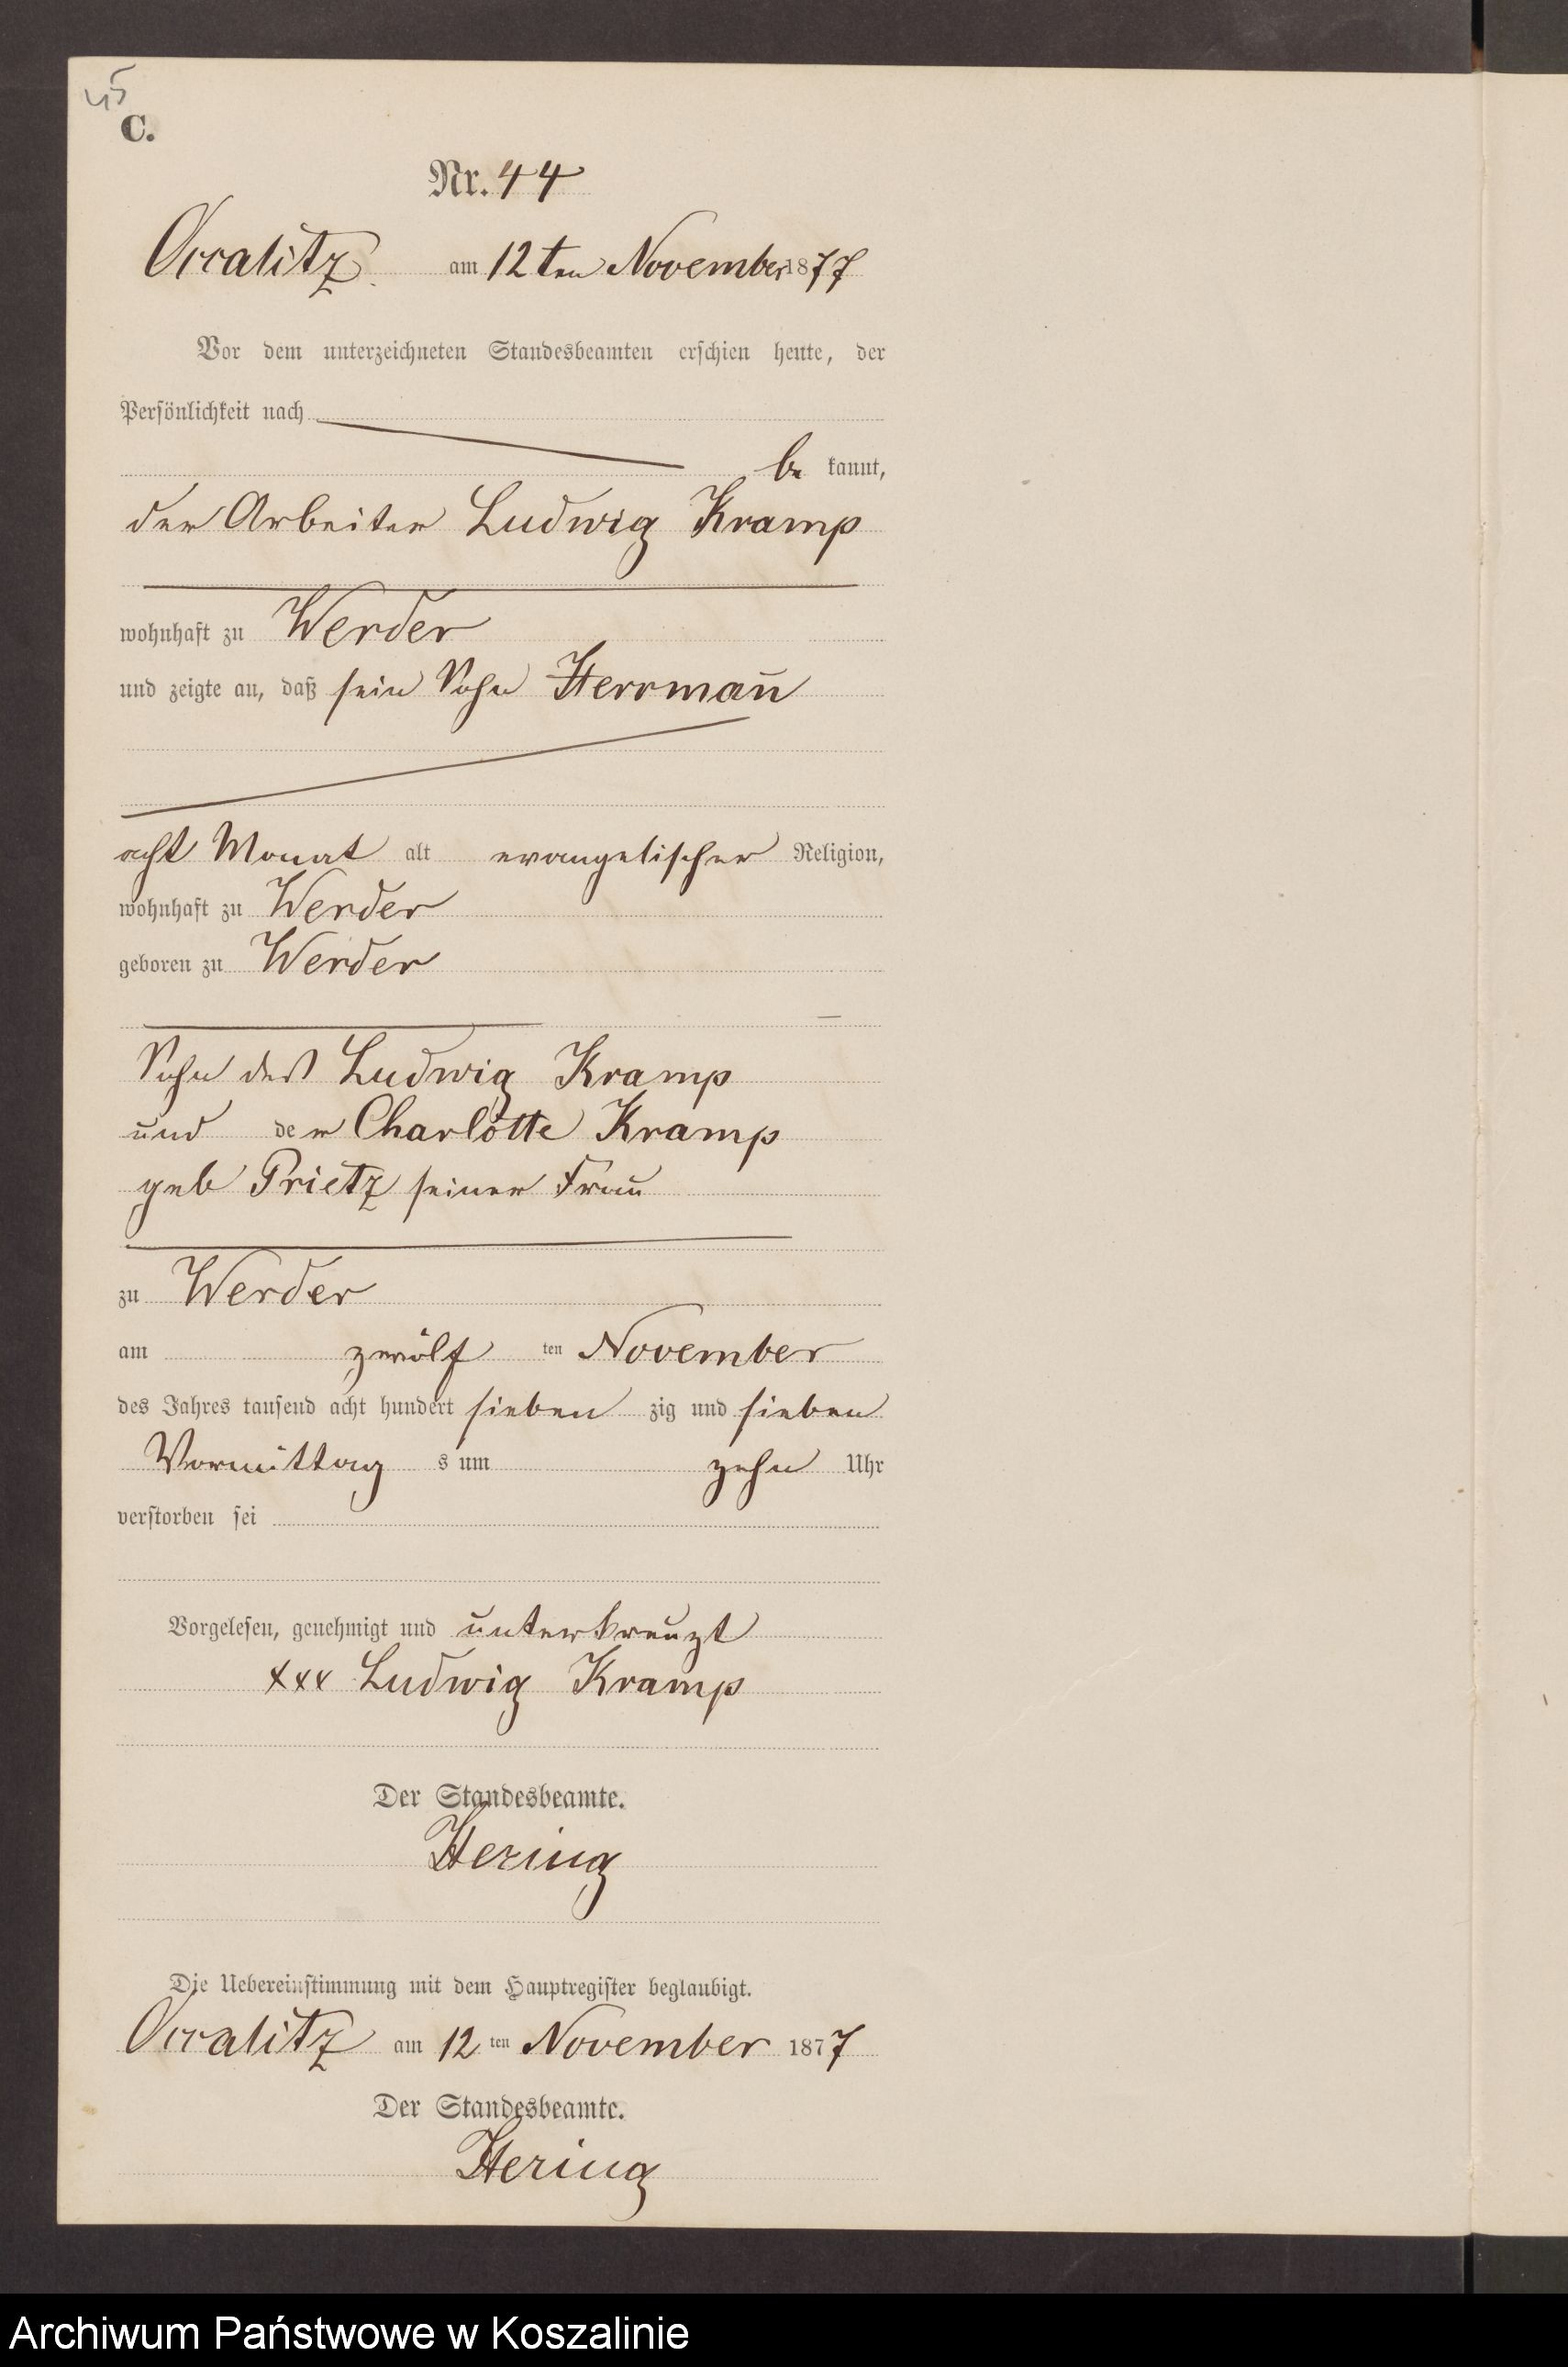 45
C.
Nr. 44
Occalitz am 12ten November 1877
Vor dem unterzeichneten Standesbeamten erschien heute, der
Persönlichkeit nach
be kannt,
der Arbeiter Ludwig Kramp
wohnhaft zu Werder
und zeigte an, daß sein Sohn Herrman̄
acht Monat alt evangelischer Religion,
wohnhaft zu Werder
geboren zu Werder
Sohn des Ludwig Kramp
und der Charlotte Kramp
geb Prietz seiner Frau
zu Werder
am zwölf ten November
des Jahres tausend acht hundert sieben zig und sieben
Vormittag s um zehn Uhr
verstorben sei
Vorgelesen, genehmigt und unterkreuzt
xxx Ludwig Kramp
Der Standesbeamte.
Hering
Die Uebereinstimmung mit dem Hauptregister beglaubigt.
Occalitz am 12 ten November 1877
Der Standesbeamte.
Hering
Archiwum Państwowe w Koszalinie